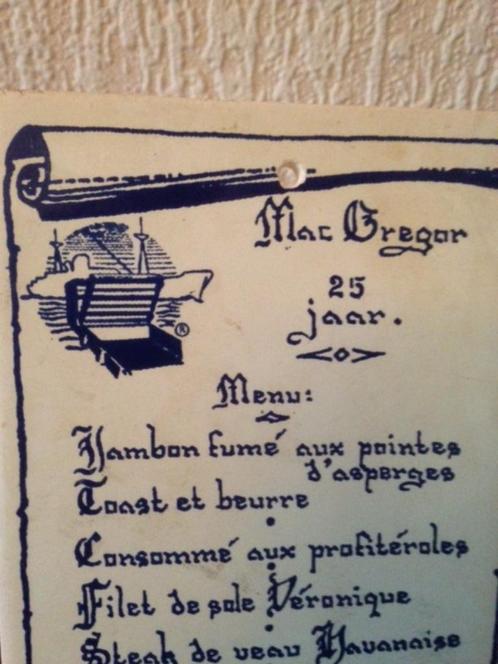 Mac Gregor
25
jaar.
®
Menu:
Jambon fumé aux pointes
d'asperges
Toast et beurre
Consommé aux profitéroles
Filet de sole Véronique
Steak de veau Havanaise